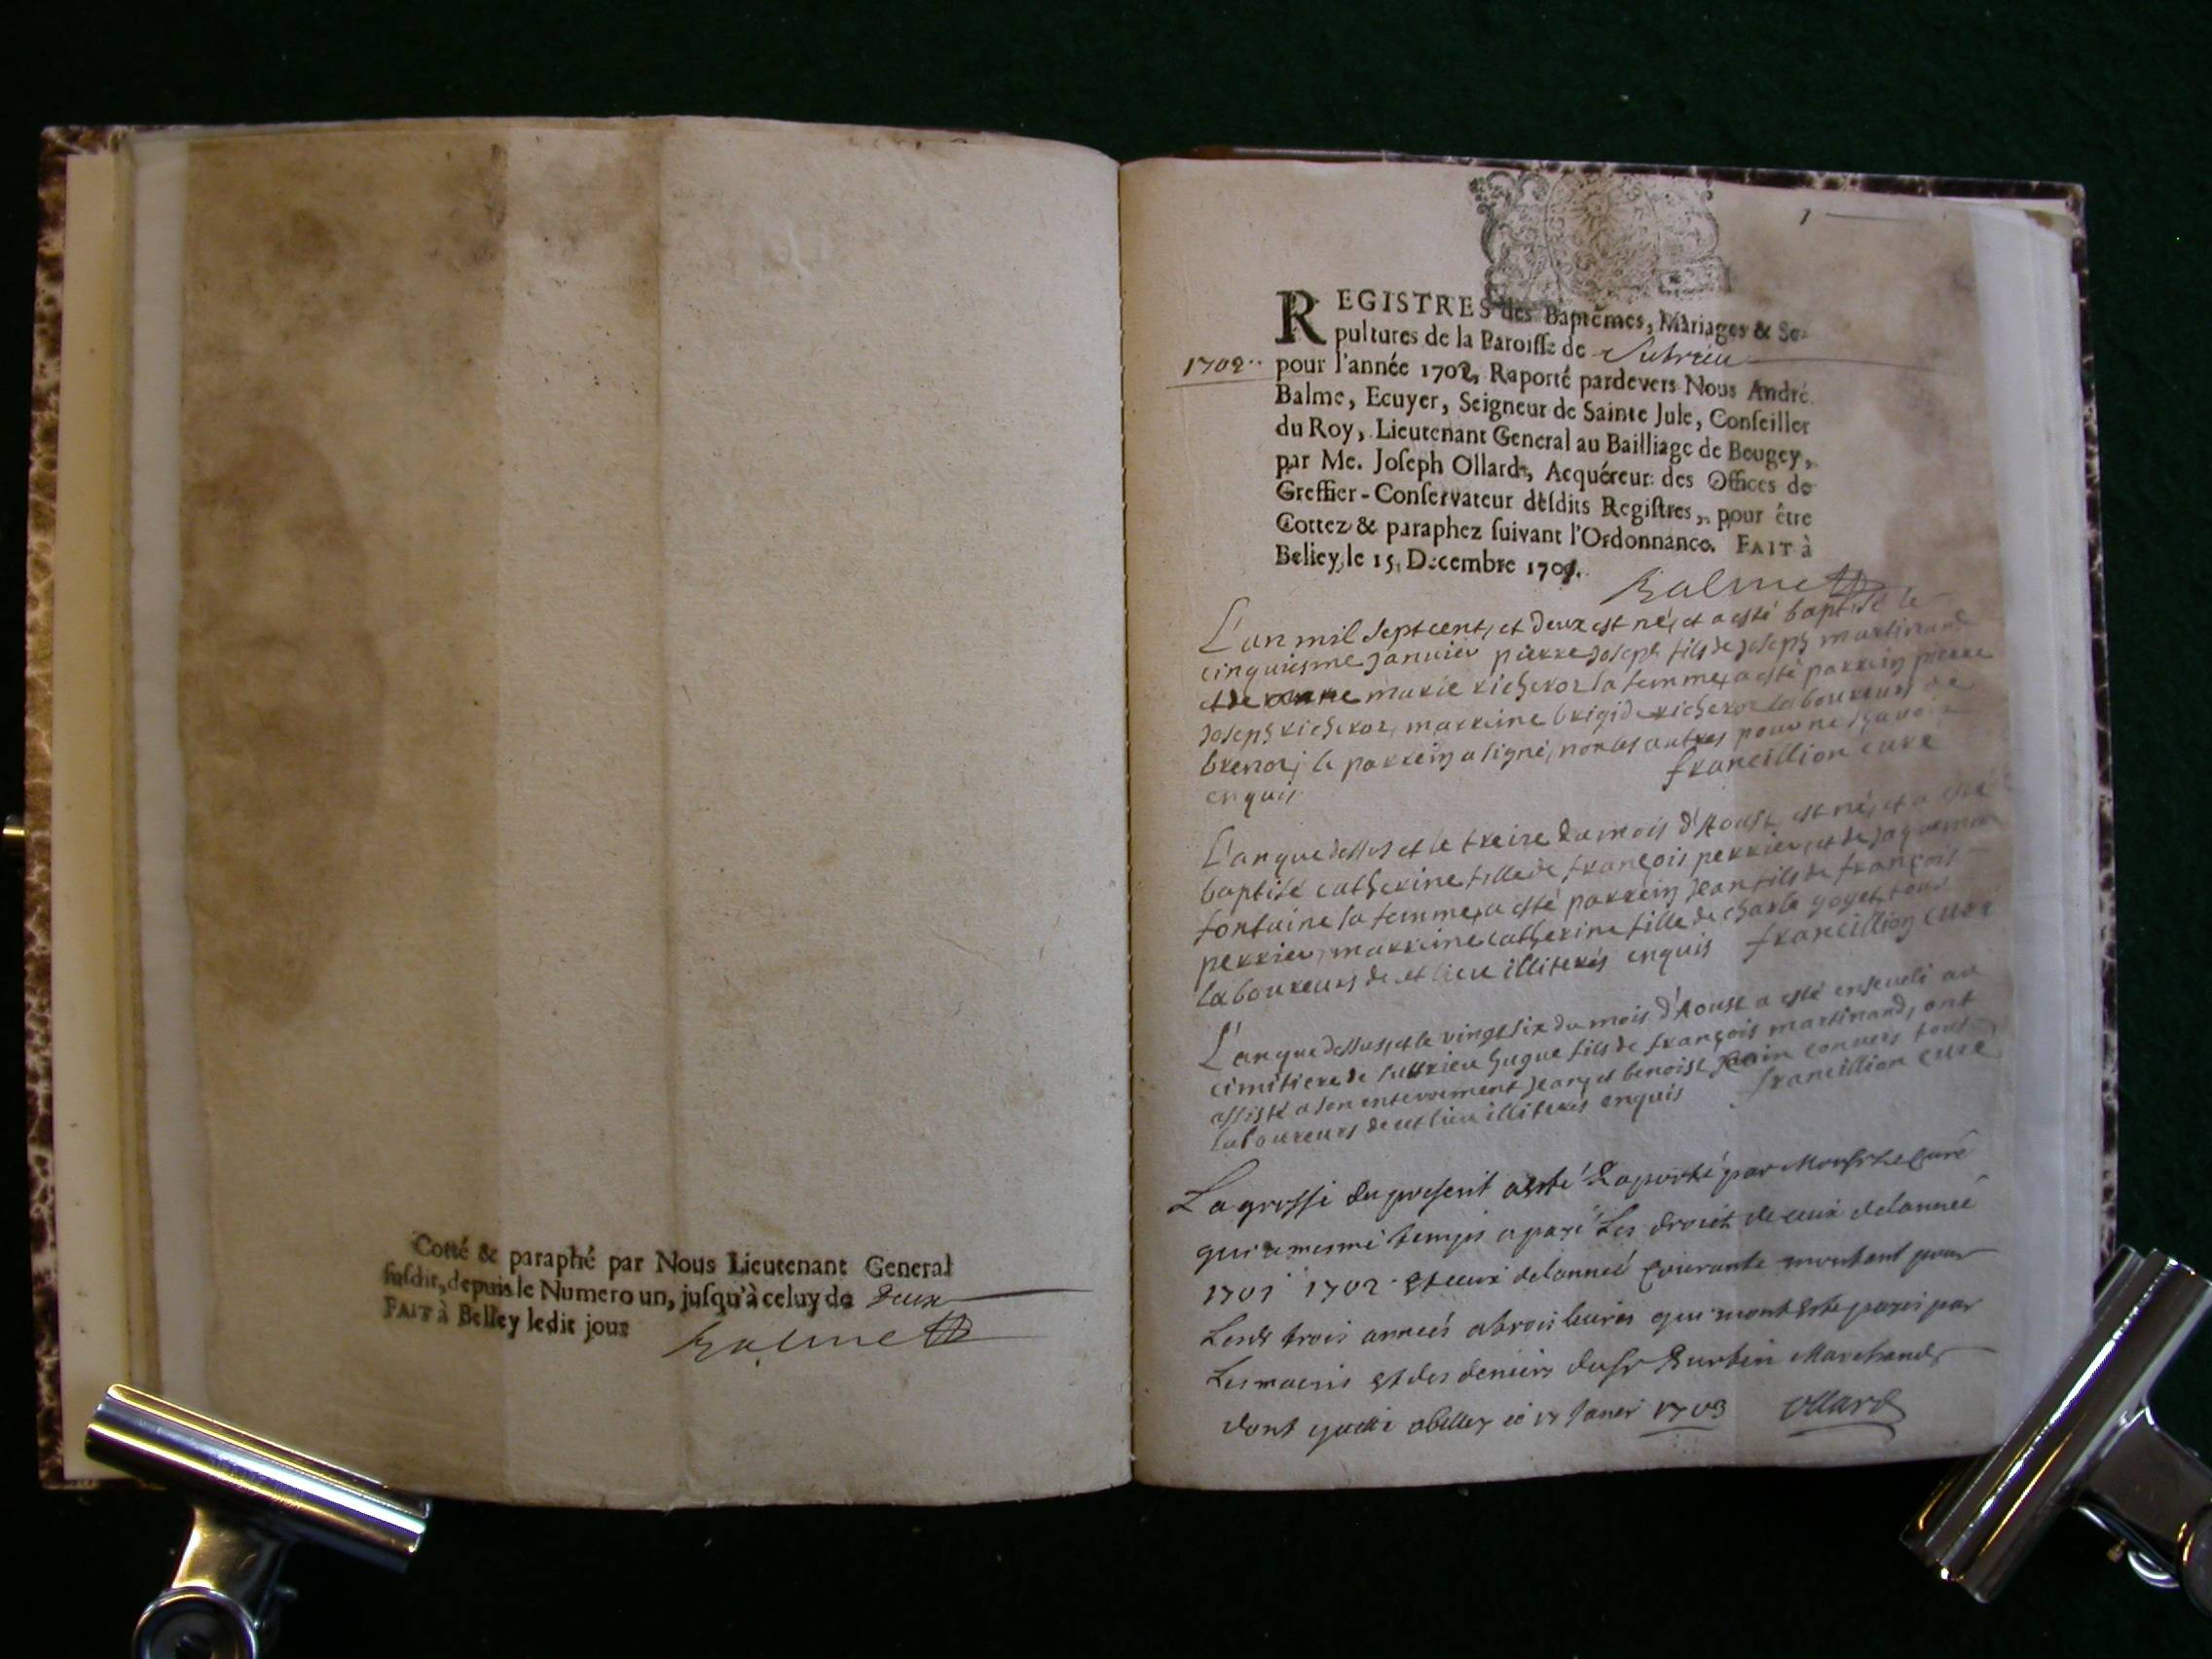 Cotté & paraphé par Nous Lieutenant General
susdit, depuis le Numero un, jusqu'à celuy de deux
FAIT à Belley ledit jour
Balme
1
REGISTRES des Baptêmes, Mariages & Se-
pultures de la Paroisse de Sutrieu
1702
pour l'année 1702, Raporté pardevers Nous André
Balme, Ecuyer, Seigneur de Sainte Jule, Conseiller
du Roy, Lieutenant General au Bailliage de Beugey,
par Me. Joseph Ollard, Acquéreur des Offices de
Greffier-Conservateur desdits Registres, pour être
Cottez & paraphez suivant l'Ordonnance. FAIT à
Belley, le 15. Decembre 1701.
Balme
L'an mil sept cent, et deux est né, et a esté baptisé le
cinquiesme Janvier pierre Joseph fils de Joseph martinand
et de marie richerot sa femme, a esté parrein pierre
Joseph richerot, marreine brigide richerot laboureurs de
brenot, le parrein a signé, non les autres pour ne sçavoir
enquis francillion curé
L'an que dessus et le treize du mois d'Aoust, est né, et a esté
baptisé catherine fille de françois perrier, et de Jaquema
fontaine sa femme, a esté parrein Jean fils de françois
perrier, marreine catherine fille de charle goyet, tous
laboureurs de cet lieu illiterés enquis francillion curé
L'an que dessus, et le vingt six du mois d'Aoust a esté enseveli au
cimitiere de sutrieu hugue fils de françois martinand, ont
assisté a son enterrement Jean, et benoist convers tous
laboureurs de cet lieu illiterés enquis francillion curé
La grosse du present a esté Raporté par Monsr Le Curé
qui a mesme temps a payé Les droit de ceux de lannee
1701 1702 Et ceux de lanneé Courante montant pour
Lesds trois anneés a trois livres qui mont Esté payeé par
Les mains Et des deniers du Sr Burtin Marchand
dont quitté a belley ce 17 Janer 1703 Ollard